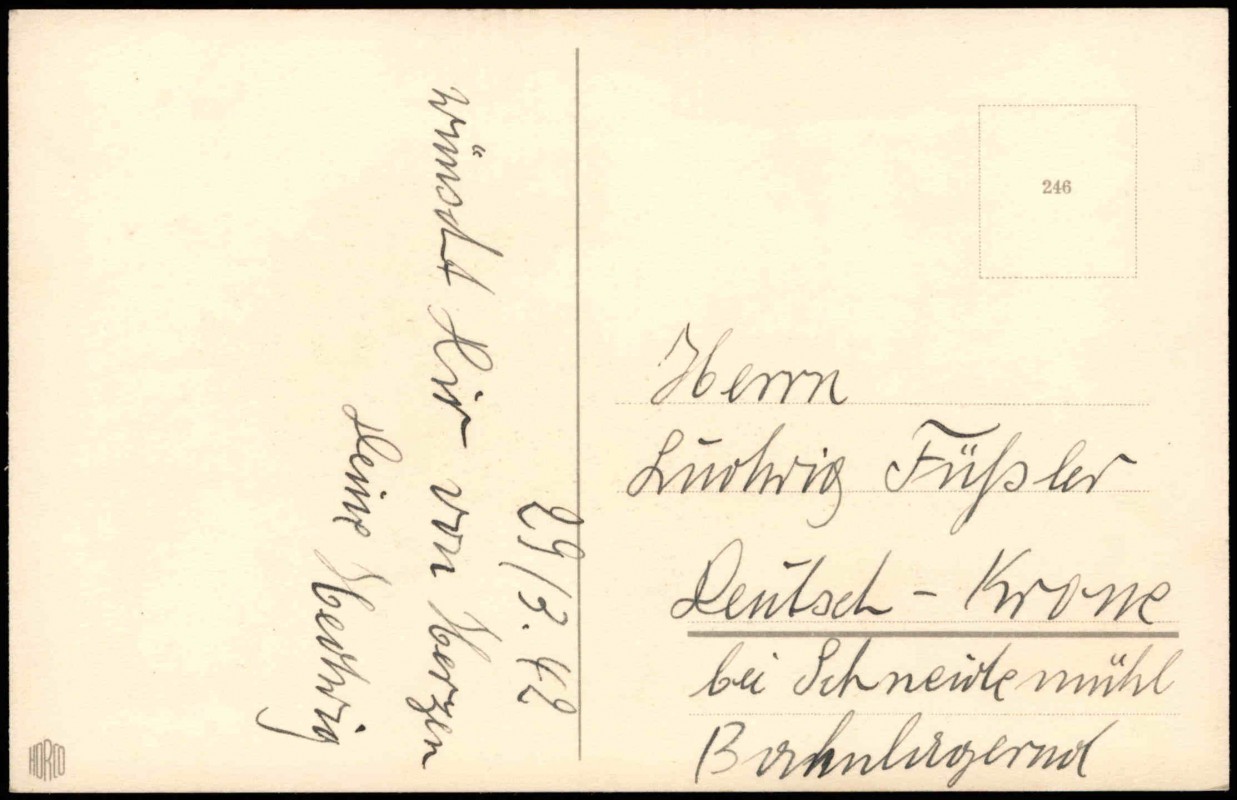 29/3.42
wünscht Dir von Herzen
Deine Hedwig
246
Herrn
Ludwig Füßler
Deutsch-Krone
bei Schneidemühl
Bahnlagernd
HORCO